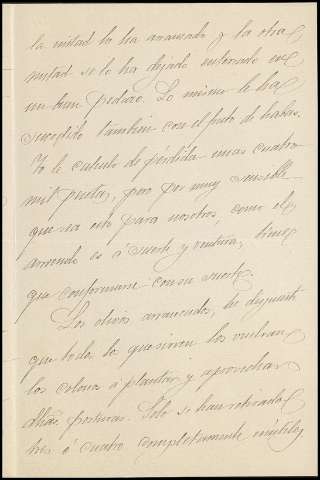 la mitad lo ha arrancado y la otra
mitad se lo ha dejado enterrado en
un buen pedazo. Lo mismo le ha
sucedido tambien con el fruto de habas.
Yo le calculo de pérdida unas cuatro
mil pesetas, pero por muy sensible
que sea esto para nosotros, como el
arriendo es á suerte y ventura, tiene
que conformarse con su suerte.
Los olivos arrancados, he dispuesto
que todos los que sirvan los vuelvan
los colonos a plantar y aprovechar
dhas. posturas. Solo se han retirado
tres ó cuatro completamente inútiles,